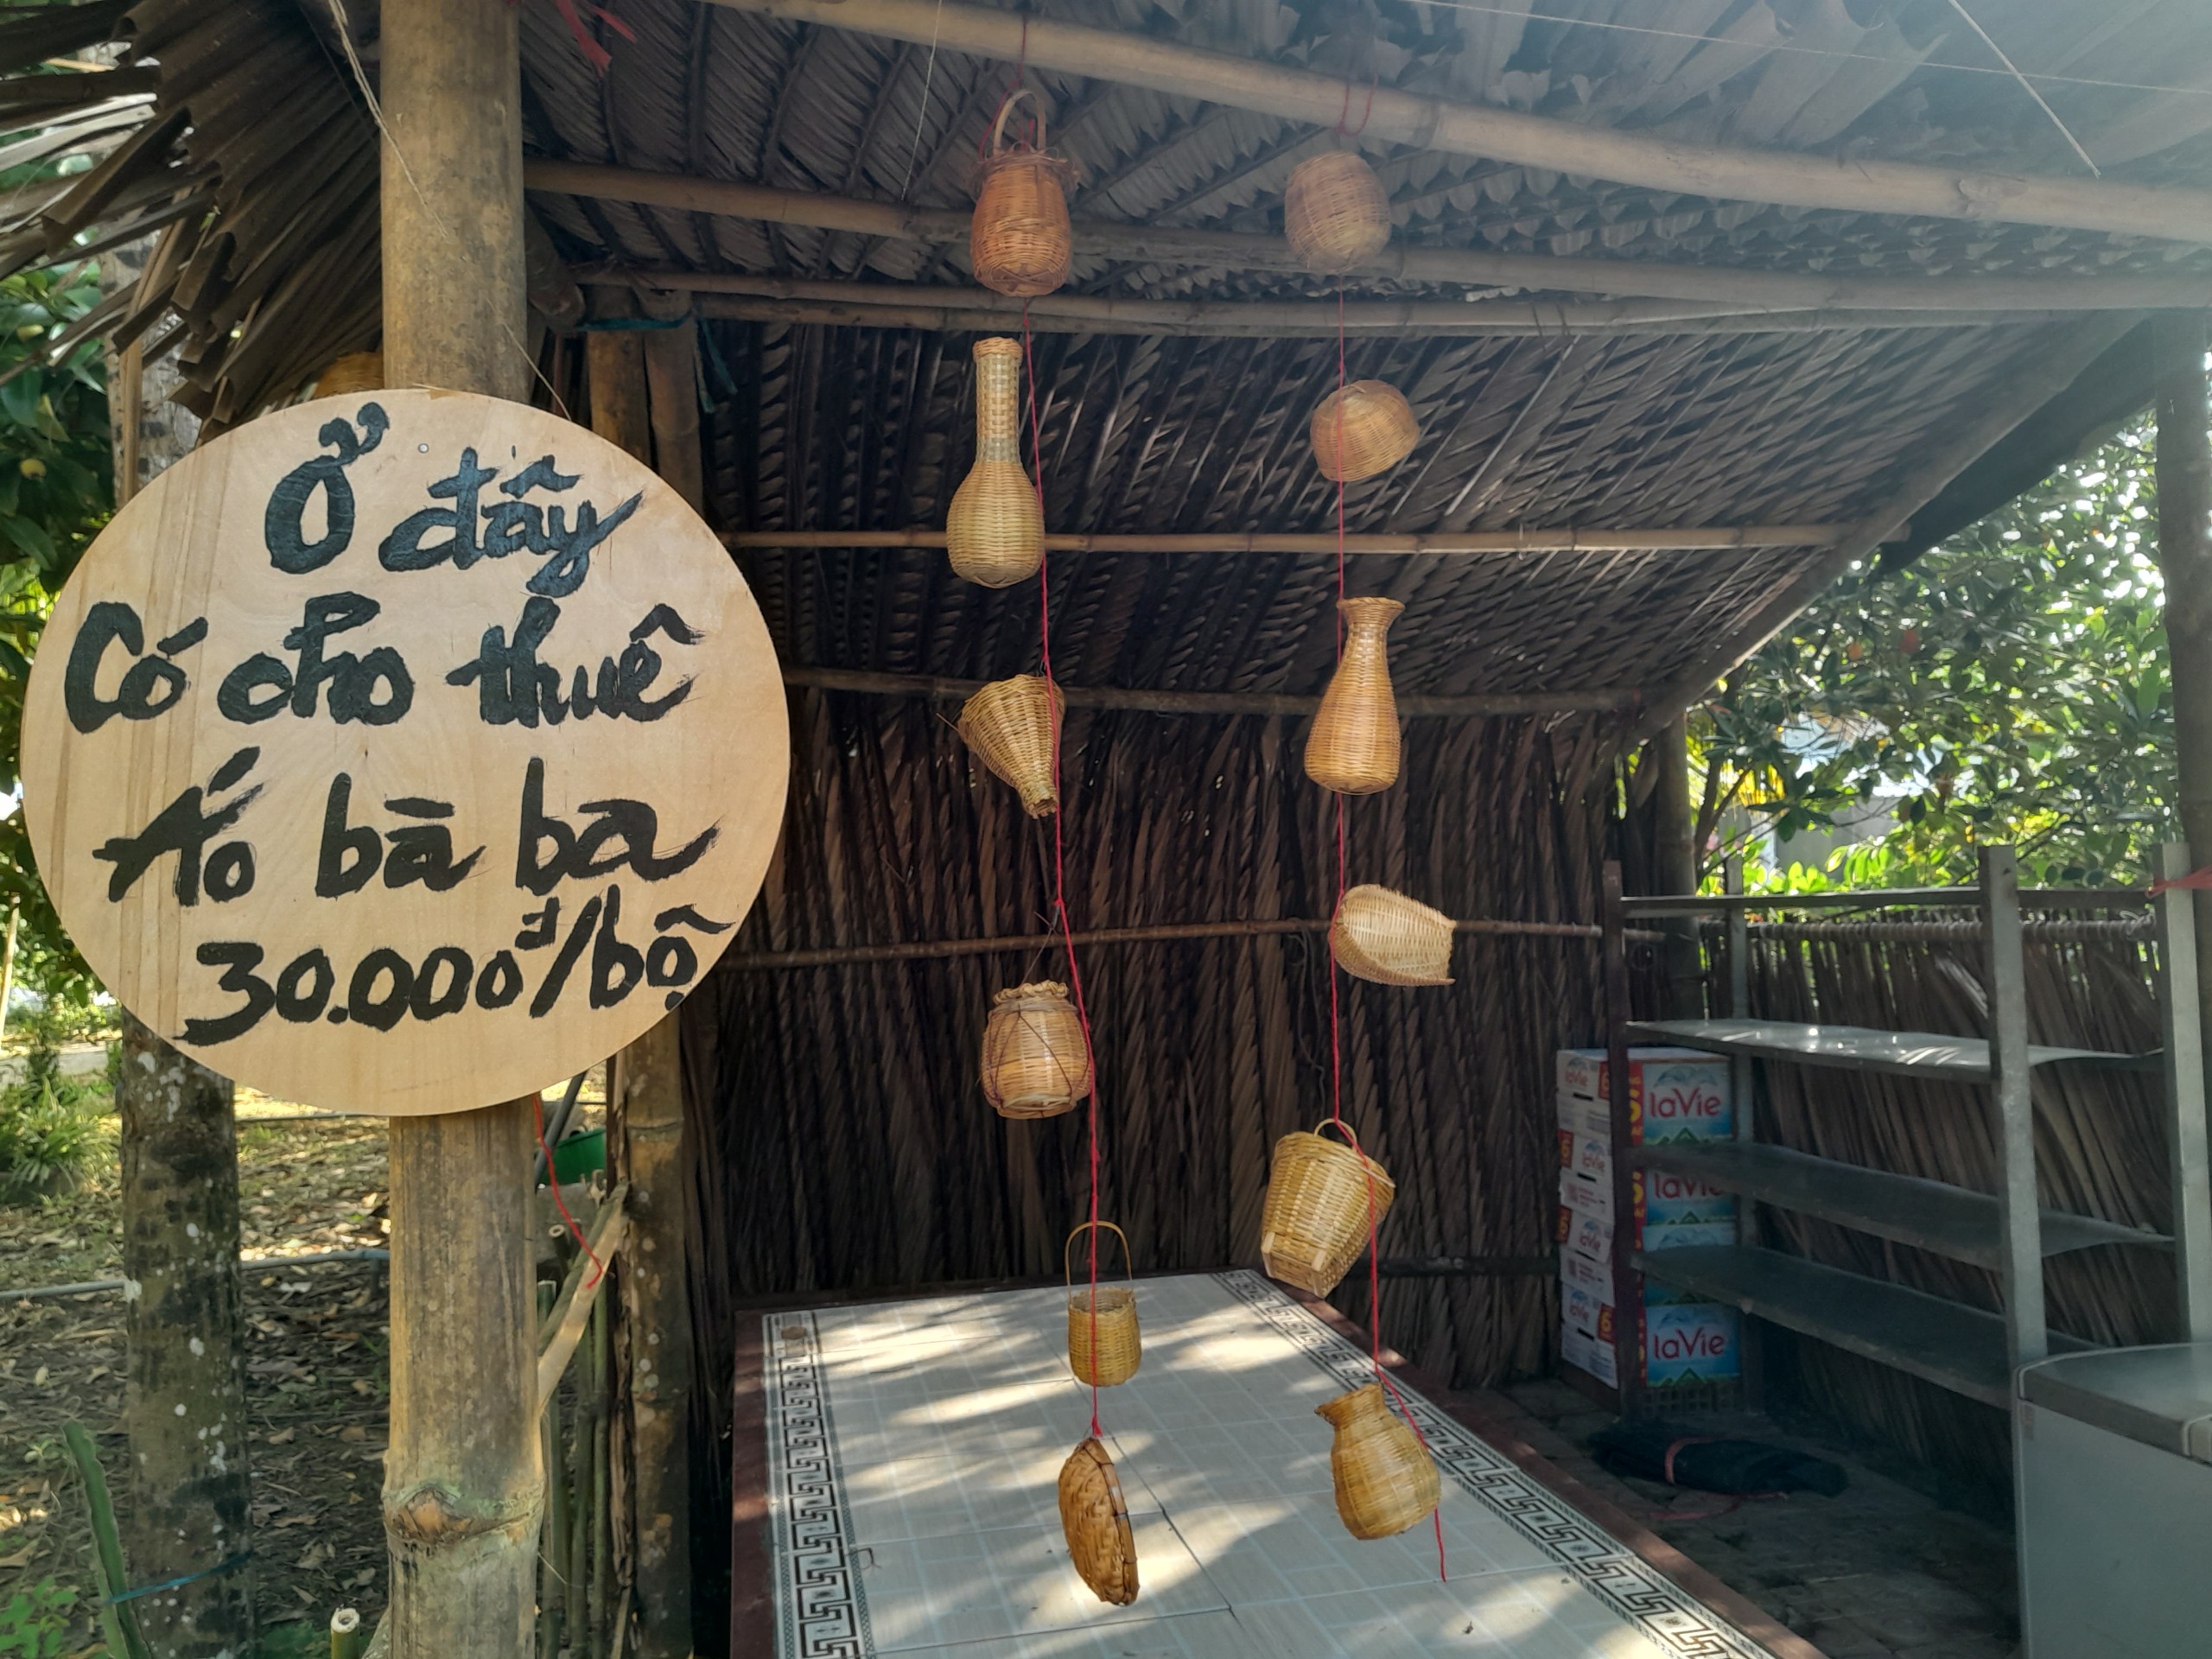 Ở đây
Có cho thuê
Áo bà ba
30.000đ/bộ
laVie
laVie
laVie
laVie
laVie
laVie
6
6
6